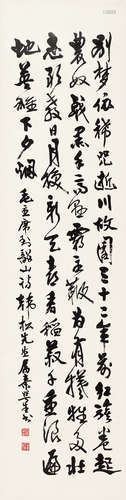 别夢依稀咒逝川故園三十二年前紅旗卷起
農奴戟黑手高懸霸主鞭為有犧牲多壯
志敢教日月换新天喜看稻菽千重浪遍
地英雄下夕烟 毛主席到韶山詩 松先生属秦咢生書